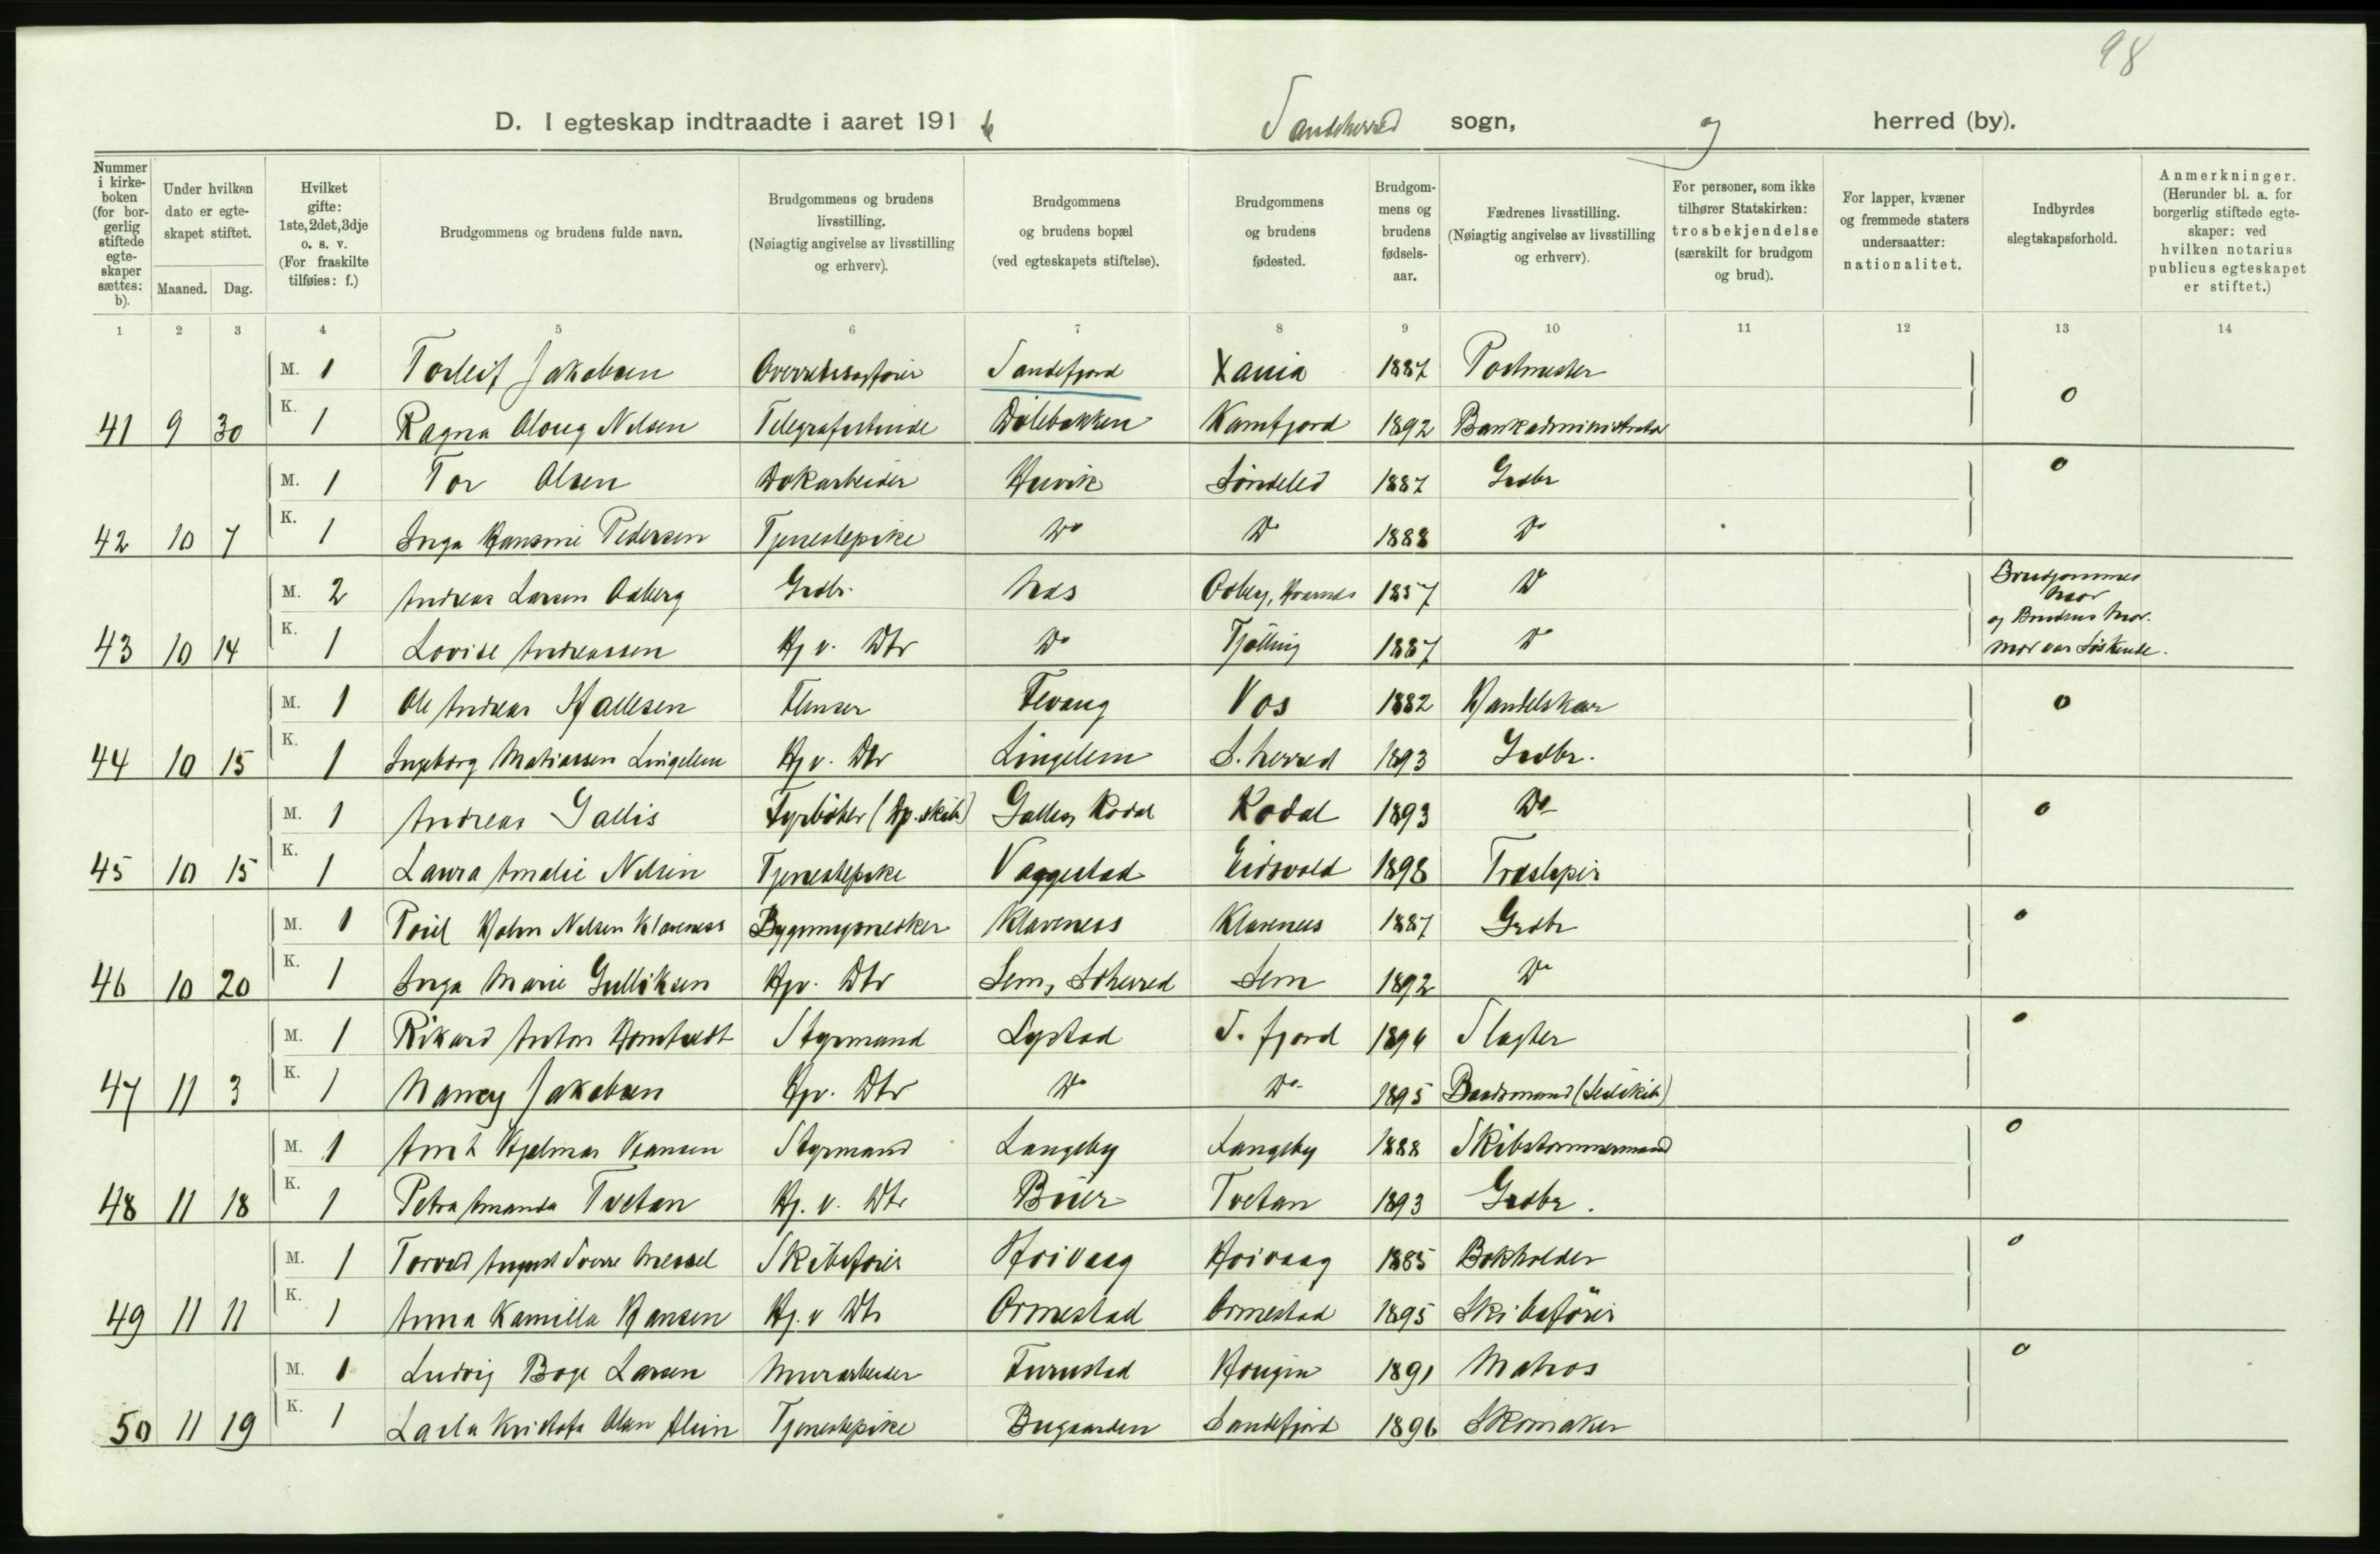 98
D. I egteskap indtraadte i aaret 1916 Sandeherred sogn, og herred (by).
Nummer i kirkeboken (for borgerlig stiftede egteskaper sættes: b).
Under hvilken dato er egteskapet stiftet.
Maaned. Dag.
Hvilket gifte: 1ste, 2det, 3dje o. s. v. (For fraskilte tilføies: f.)
Brudgommens og brudens fulde navn.
Brudgommens og brudens livsstilling. (Nøiagtig angivelse av livsstilling og erhverv).
Brudgommens og brudens bopæl (ved egteskapets stiftelse).
Brudgommens og brudens fødested.
Brudgommens og brudens fødselsaar.
Fædrenes livsstilling. (Nøiagtig angivelse av livsstilling og erhverv).
For personer, som ikke tilhører Statskirken: trosbekjendelse (særskilt for brudgom og brud).
For lapper, kvæner og fremmede staters undersaatter: nationalitet.
Indbyrdes slegtskapsforhold.
Anmerkninger. (Herunder bl. a. for borgerlig stiftede egteskaper: ved hvilken notarius publicus egteskapet er stiftet.)
1 2 3 4 5 6 7 8 9 10 11 12 13 14
M. 1 Torleif Jakobsen Overretssagfører Sandefjord Xania 1887 Postmester
41 9 30 K. 1 Ragna Nilsen Telegrafistinde Dølebakken Kamfjord 1892 Bankadministrator 0
M. 1 Tor Olsen Dokarbeider Huvik Søndeled 1887 Grdbr 0
42 10 7 K. 1 Inga Hansine Pedersen Tjenestepike Do Do 1888 Do
M. 2 Andreas Larsen Aaberg Grdbr. Næs 1857 Do Brudgommens mor
43 10 14 K. 1 Lovise Andreassen Hj v. Dtr Do Tjølling 1887 Do og Brudens mor. mor var Søskende.
M. 1 Ole Andreas Hallesen Flenser Fevang Vos 1882 Handelskar 0
44 10 15 K. 1 Ingeborg Matiassen Lingelem Hj v. Dtr Lingelem S. herred 1893 Grdbr.
M. 1 Andreas Gallis Fyrbøter (Dp. skib) Kodal Kodal 1893 Do 0
45 10 15 K. 1 Laura Amalie Nilsen Tjenestepike Vaggestad Eidsvold 1898 Træsliper
M. 1 Nilsen Klaveness Bygningssnedker Klaveness Klavenes 1887 Grdbr 0
46 10 20 K. 1 Inga Marie Gulliksen Hjv. Dtr Sem, Sem 1892 Do
M. 1 Rikard Anton Styrmand Lystad S. fjord 1894 Slagter 0
47 11 3 K. 1 Nancy Jakobsen Hjv. Dtr Do Do 1895 Baadsmand (Seilskib)
M. 1 Arnt Hjalmar Hansen Styrmand Langeby Langeby 1888 Skibstømmermand 0
48 11 18 K. 1 Petra Amanda Tvetan Hj. v. Dtr Buer Tvetan 1893 Grdbr.
M. 1 Torvald August Sverre Messel Skibsfører Høivaag Høivaag 1885 Bokholder 0
49 11 11 K. 1 Anna Kamilla Hansen Hj. v Dtr Ormestad Ormestad 1895 Skibsfører
M. 1 Ludvig Larsen Murarbeider Furustad Haugen 1891 Matros 0
50 11 19 K. 1 Olsen Tjenestepike Bugaarden Sandefjord 1896 Skomaker